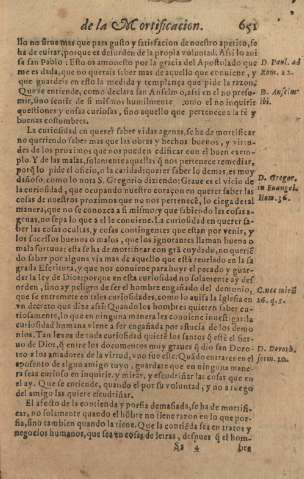 de la Mortificacion. 651
llo no siruе mas que para gusto y satisfacion de nuestro apetito, se
ha de euitar, porque es desorden de la propia voluntad. Assi lo aui
sa san Pablo: Esto os amonesto por la gracia del Apostolado que
me es dada, que no querais saber mas de aquello que conuiene, y
que guardeis en esto la medida y templança que pide la razon.
Que se entiende, como declara san Anselmo, assi en el no presu-
mir, sino sentir de si mismos humilmente como el no inquirir
questiones y cosas curiosas, sino aquello que pertenece a la fè y
buenas costumbres.
D. Paul. ad
Rom. 12.
D. Anselm
ibi.
La curiosidad en querer saber vidas agenas, se ha de mortificar
no queriendo saber mas que las obras y hechos buenos, y virtu-
des de los proximos que nos pueden edificar con el buen exem-
plo. Y de las malas, solamente aquellas q̃ nos pertenece remediar,
porq̃ lo pide el oficio, o la caridad: querer saber lo demas, es muy
dañoso, como lo nota S. Gregorio diziendo: Graue es el vicio de
la curiosidad, que ocupando nuestro coraçon en querer saber las
cosas de nuestros proximos que no nos pertenecẽ, lo ciega de tal
manera, que no se conozca a si mismo; y que sabiendo las cosas a-
genas, no sepa lo que a el le conuiene. La curiosidad en querer sa-
ber las cosas ocultas, y cosas contingentes que estan por venir, y
los sucessos buenos o malos, que los ignorantes llaman buena o
mala fortuna: esta se ha de mortificar con grã cuydado, no querien
do saber por alguna via mas de aquello que està reuelado en la sa
grada Escritura, y que nos conuiene para huyr el pecado y guar-
dar la ley de Dios: porque en esta curiosidad no solamente ay des
orden, sino ay peligro de ser el hombre engañado del demonio,
que se entremete en tales curiosidades, como lo auisa la Iglesia en
vn decreto que dize assi: Quando los hombres quieren saber cu-
riosamente, lo que en ninguna manera les conuiene inuestigar la
curiosidad humana viene a ser engañada por astucia de los demo
nios. Tan lexos de toda curiosidad quiere los santos q̃ estè el Sier-
uo de Dios, q̃ entre los documentos muy graues q̃ dio san Doro-
teo a los amadores de la virtud, vno fue este: Quãdo entrares en el
aposento de algun amigo tuyo, guardate que en ninguna mane-
ra seas curioso en inquirir, y mirar, y escudriñar las cosas que en
el ay. Que se entiende, quando el por su voluntad, y no a ruego
del amigo las quiere escudriñar.
D. Gregor.
in Euangel.
Hom. 36.
26. q. 5.
D. Doroth.
serm. 20.
El afecto de la contienda y porfia demasiada, se ha de mortifi-
car, no solamente quando el hõbre no tiene razon en lo que por-
fia, sino tambien quando la tiene. Que la contienda sea en tratos y
negocios humanos, que sea en cosas de letras, despues q̃ el hom-
Ss 4 bre